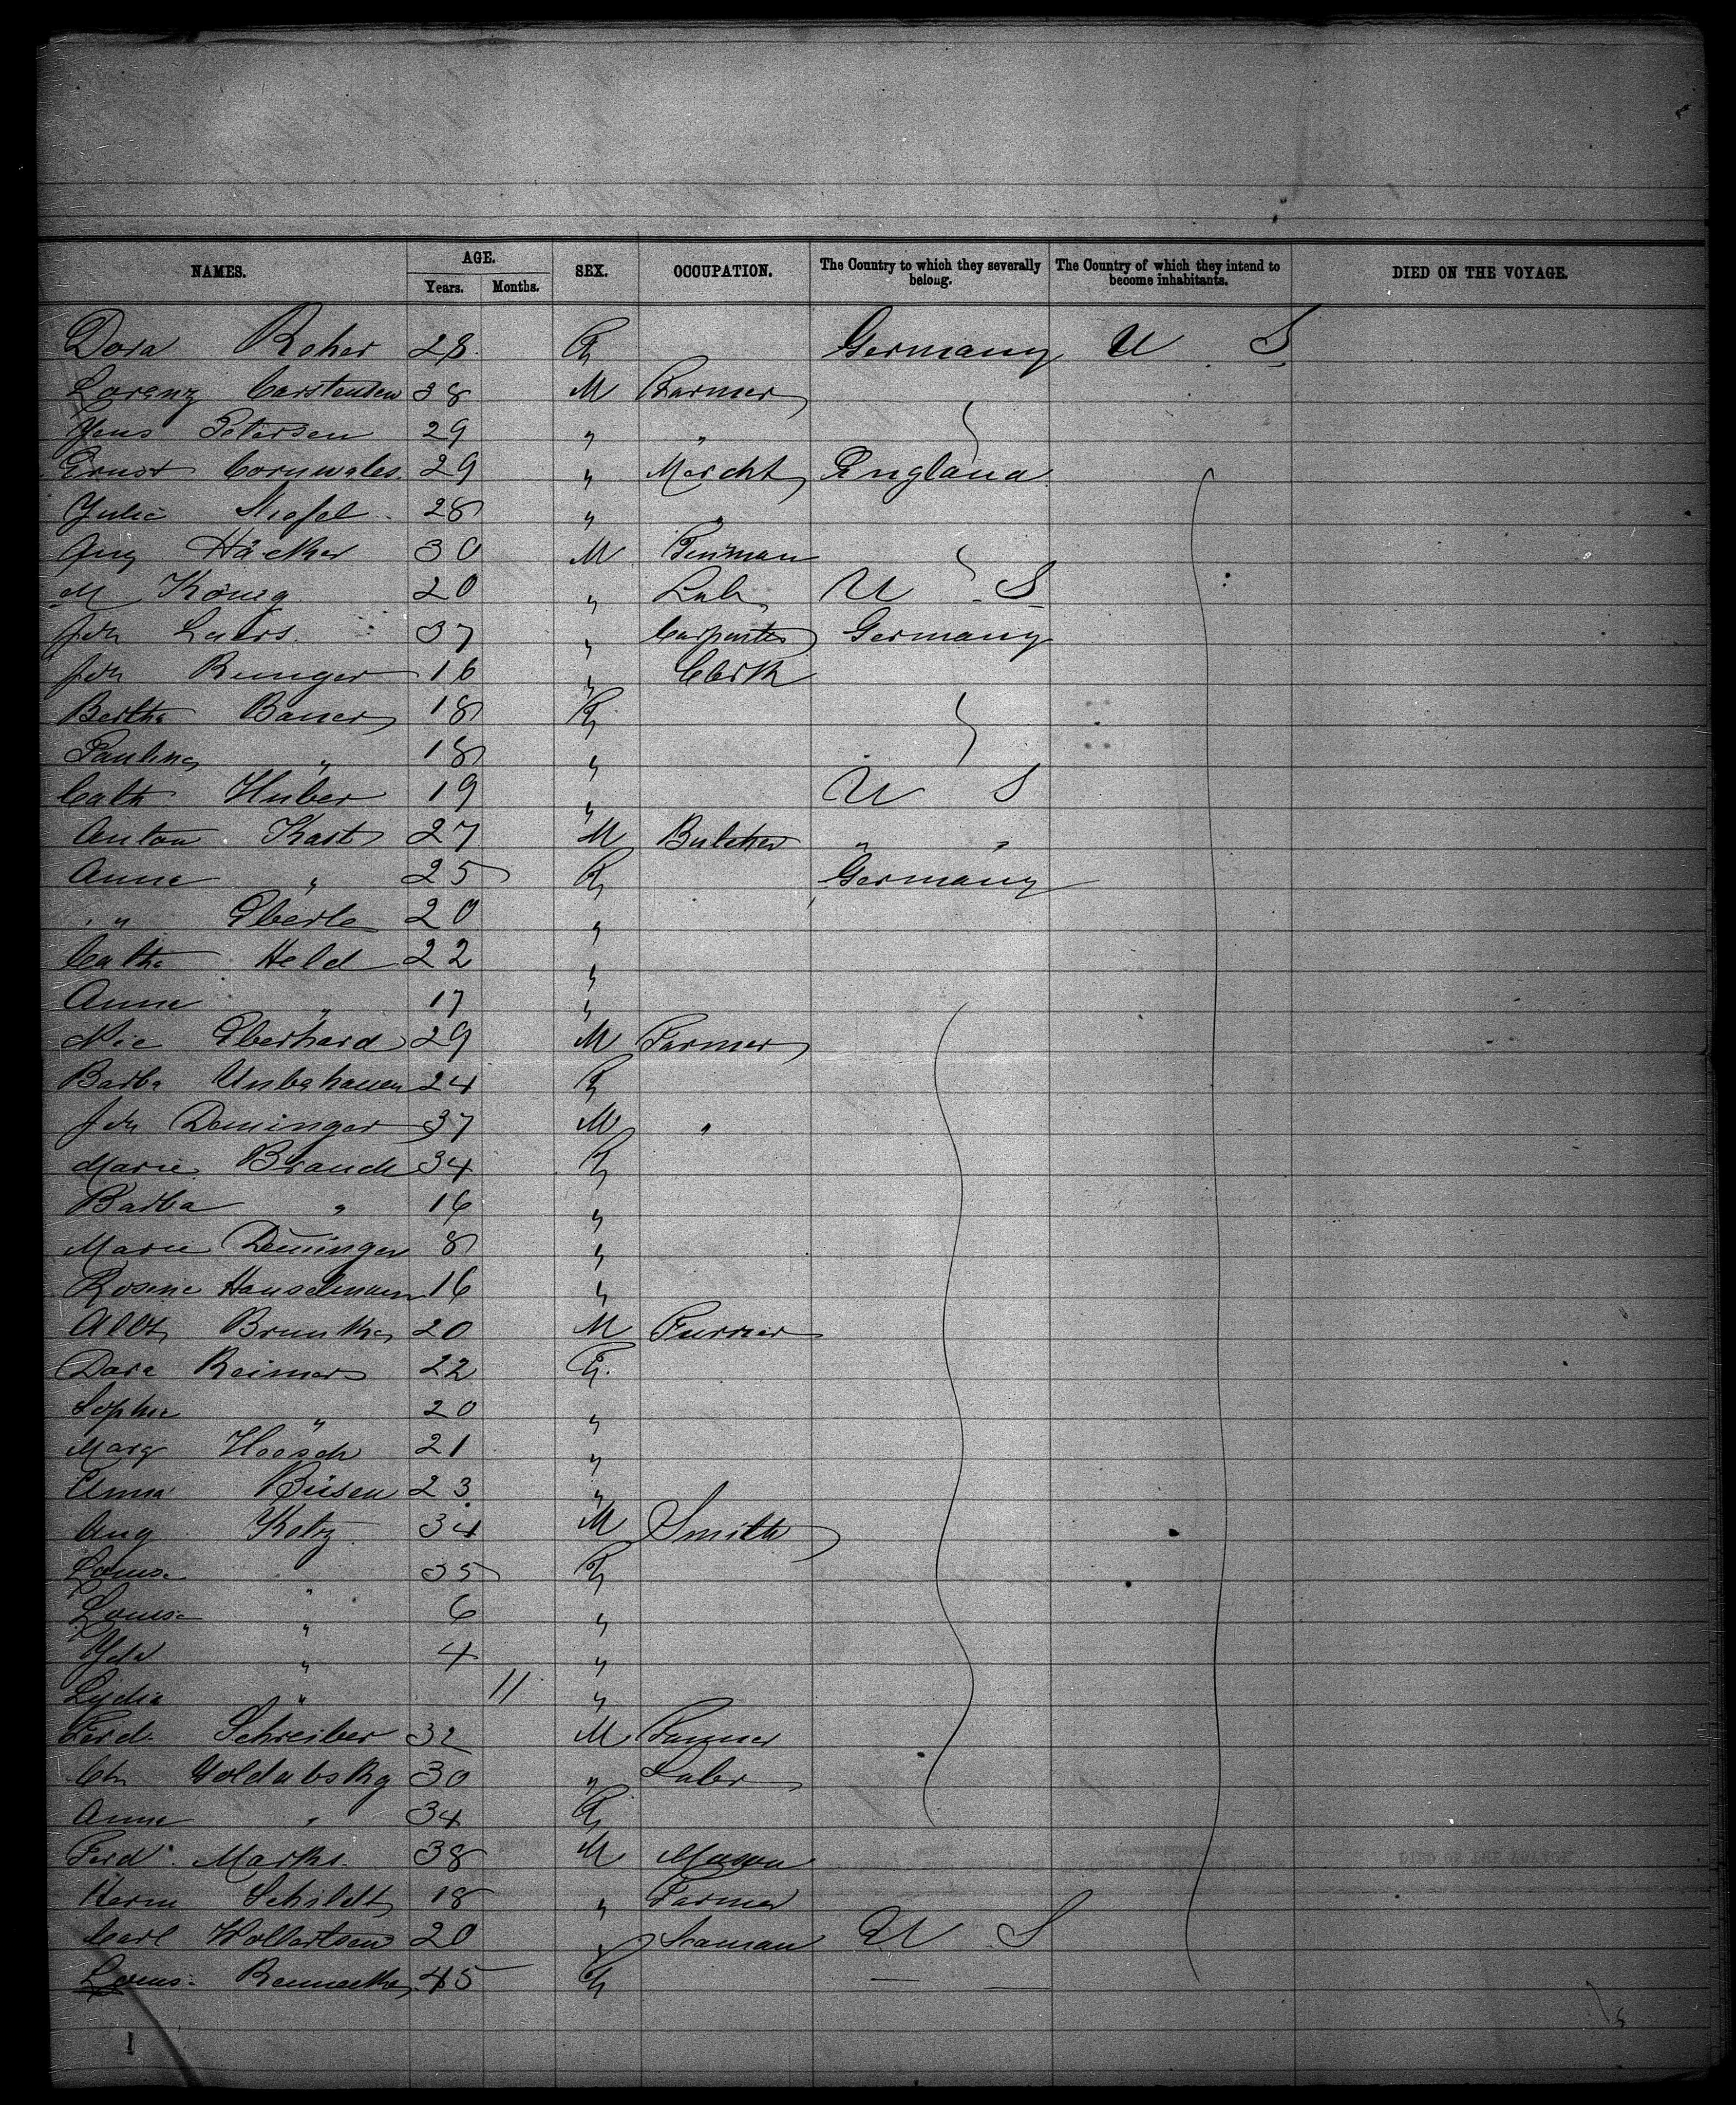 NAMES. AGE. SEX. OCCUPATION. The Country to which they severally belong. The Country of which they intend to become inhabitants. DIED ON THE VOYAGE.
Years. Months.
Dora Roher 28 F Germany U S
Lorenz Carstensen 38 M Farmer
Jens Petersen 29 " "
Ernst Cornwales 29 " Mercht England
Julie 28 " "
Aug Häcker 30 M
M König 20 " Lab U S
Joh Laers 37 " Carpenter Germany
Joh Runger 16 " Clerk
Bertha Bauer 18 F
Pauline " 18 "
Cath Huber 19 " U S
Anton Kast 27 M Butcher " "
Anna " 25 F Germany
" Eberle 20 "
Cath Held 22 "
Anna " 17 "
Nic Eberhard 29 M Farmer
Barba Unbehauen 24 F
Joh Deininger 37 M "
Marie Brandt 34 F
Barba " 16 "
Marie Deininger 8 "
Rosine Hanselmann 16 "
Albt Brunke 20 M Furrier
Dora Reimers 22 F.
Sophie " 20 "
Marg Hoesch 21 "
Anna Büsen 23 "
Aug Kotz 34 M Smith
Louise " 35 F
Louise " 6 "
Ida " 4 "
Lydia " 11 "
Ferd. Schreiber 32 M Farmer
Chr Goldabsky 30 " Labr
Anna " 34 F
Ferd. Marks 38 M Mason
Herm Schildt 18 " Farmer
Carl Wollertsen 20 " Seaman U S
Louise 45 F — —
OLD ON THE VOYAGE